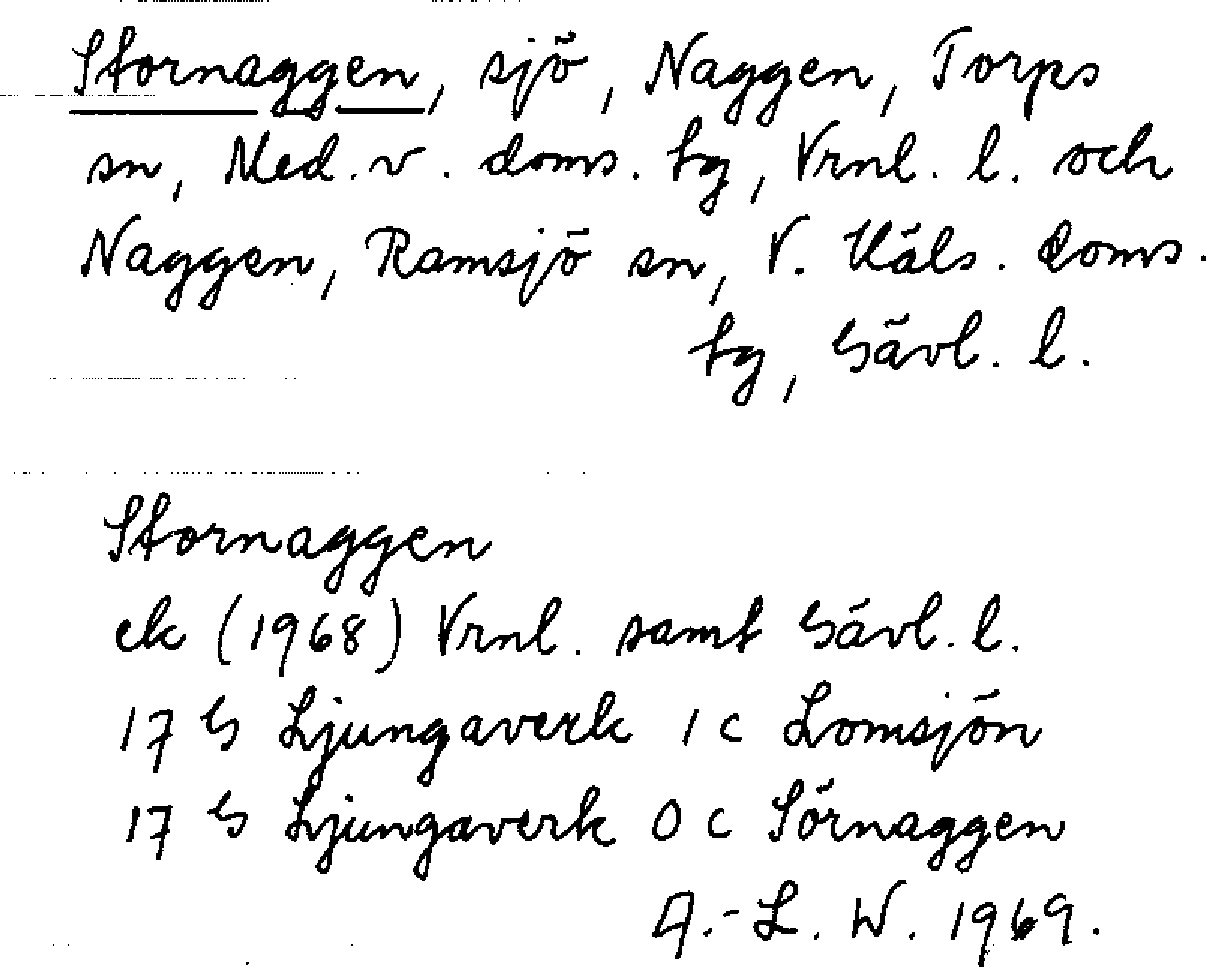 Stornaggen, sjö, Naggen, Torps
sn, Med. v. doms. tg, Vrnl. l. och
Naggen, Ramsjö sn, V. Häls. doms.
tg, Gävl. l.
Stornaggen
ek (1968) Vrnl. samt Gävl. l.
17 G Ljungaverk 1 c Lomsjön
17 G Ljungaverk 0 c Sörnaggen
A.-L. W. 1969.